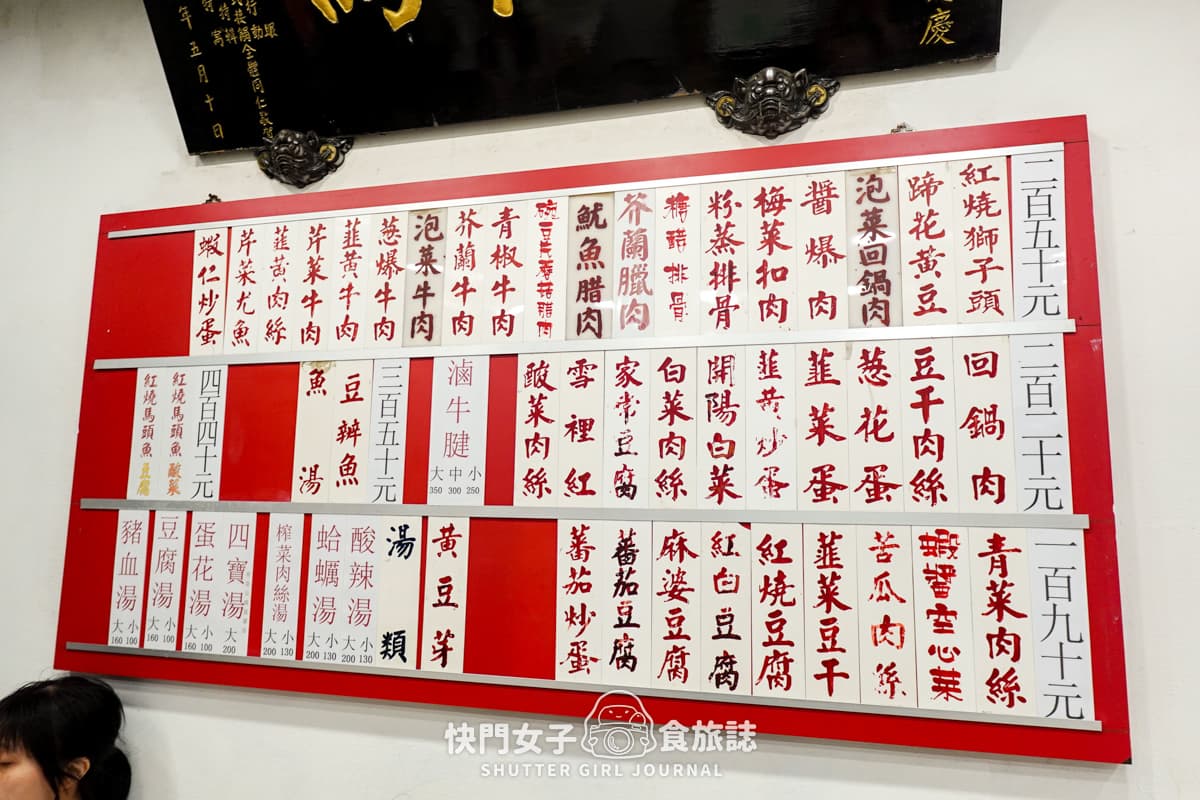 慶
年五月十日
二百五十元
紅燒獅子頭
蹄花黃豆
泡菜回鍋肉
醬爆肉
梅菜扣肉
粉蒸排骨
糖醋排骨
芥蘭臘肉
魷魚腊肉
青椒牛肉
芥蘭牛肉
泡菜牛肉
葱爆牛肉
韮黃牛肉
芹菜牛肉
韮黃肉絲
芹菜尤魚
蝦仁炒蛋
二百二十元
回鍋肉
豆干肉絲
葱花蛋
韮菜蛋
韮黃炒蛋
開陽白菜
白菜肉絲
家常豆腐
雪裡紅
酸菜肉絲
滷牛腱
大中小
350 300 250
三百五十元
豆辦魚
魚湯
四百四十元
紅燒馬頭魚酸菜
紅燒馬頭魚豆腐
一百九十元
青菜肉絲
蝦醬空心菜
苦瓜肉絲
韮菜豆干
紅燒豆腐
紅白豆腐
麻婆豆腐
蕃茄豆腐
蕃茄炒蛋
黃豆芽
湯類
酸辣湯
大小
200 130
蛤蠣湯
大小
200 130
榨菜肉絲湯
大小
200 130
四寶湯
大
200
蛋花湯
大小
160 100
豆腐湯
大小
160 100
豬血湯
大小
160 100
快門女子食旅誌
SHUTTER GIRL JOURNAL